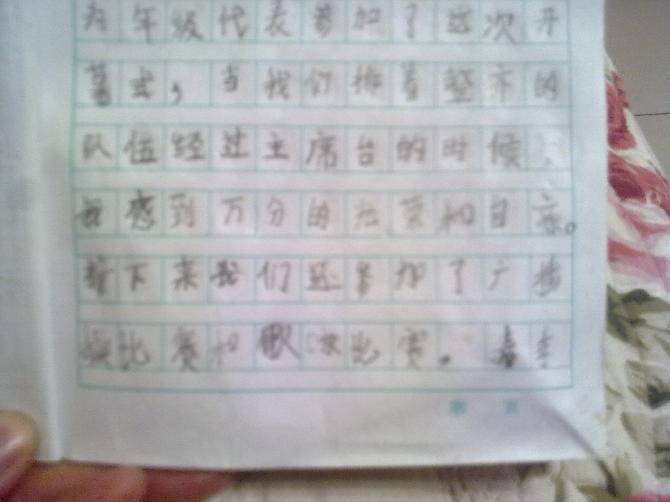 为年级代表参加了这次开
幕式,当我们排着整齐的
队伍经过主席台的时候,
我感到万分的光荣和自豪。
接下来我们还参加了广播
操比赛和歌咏比赛。
第 页